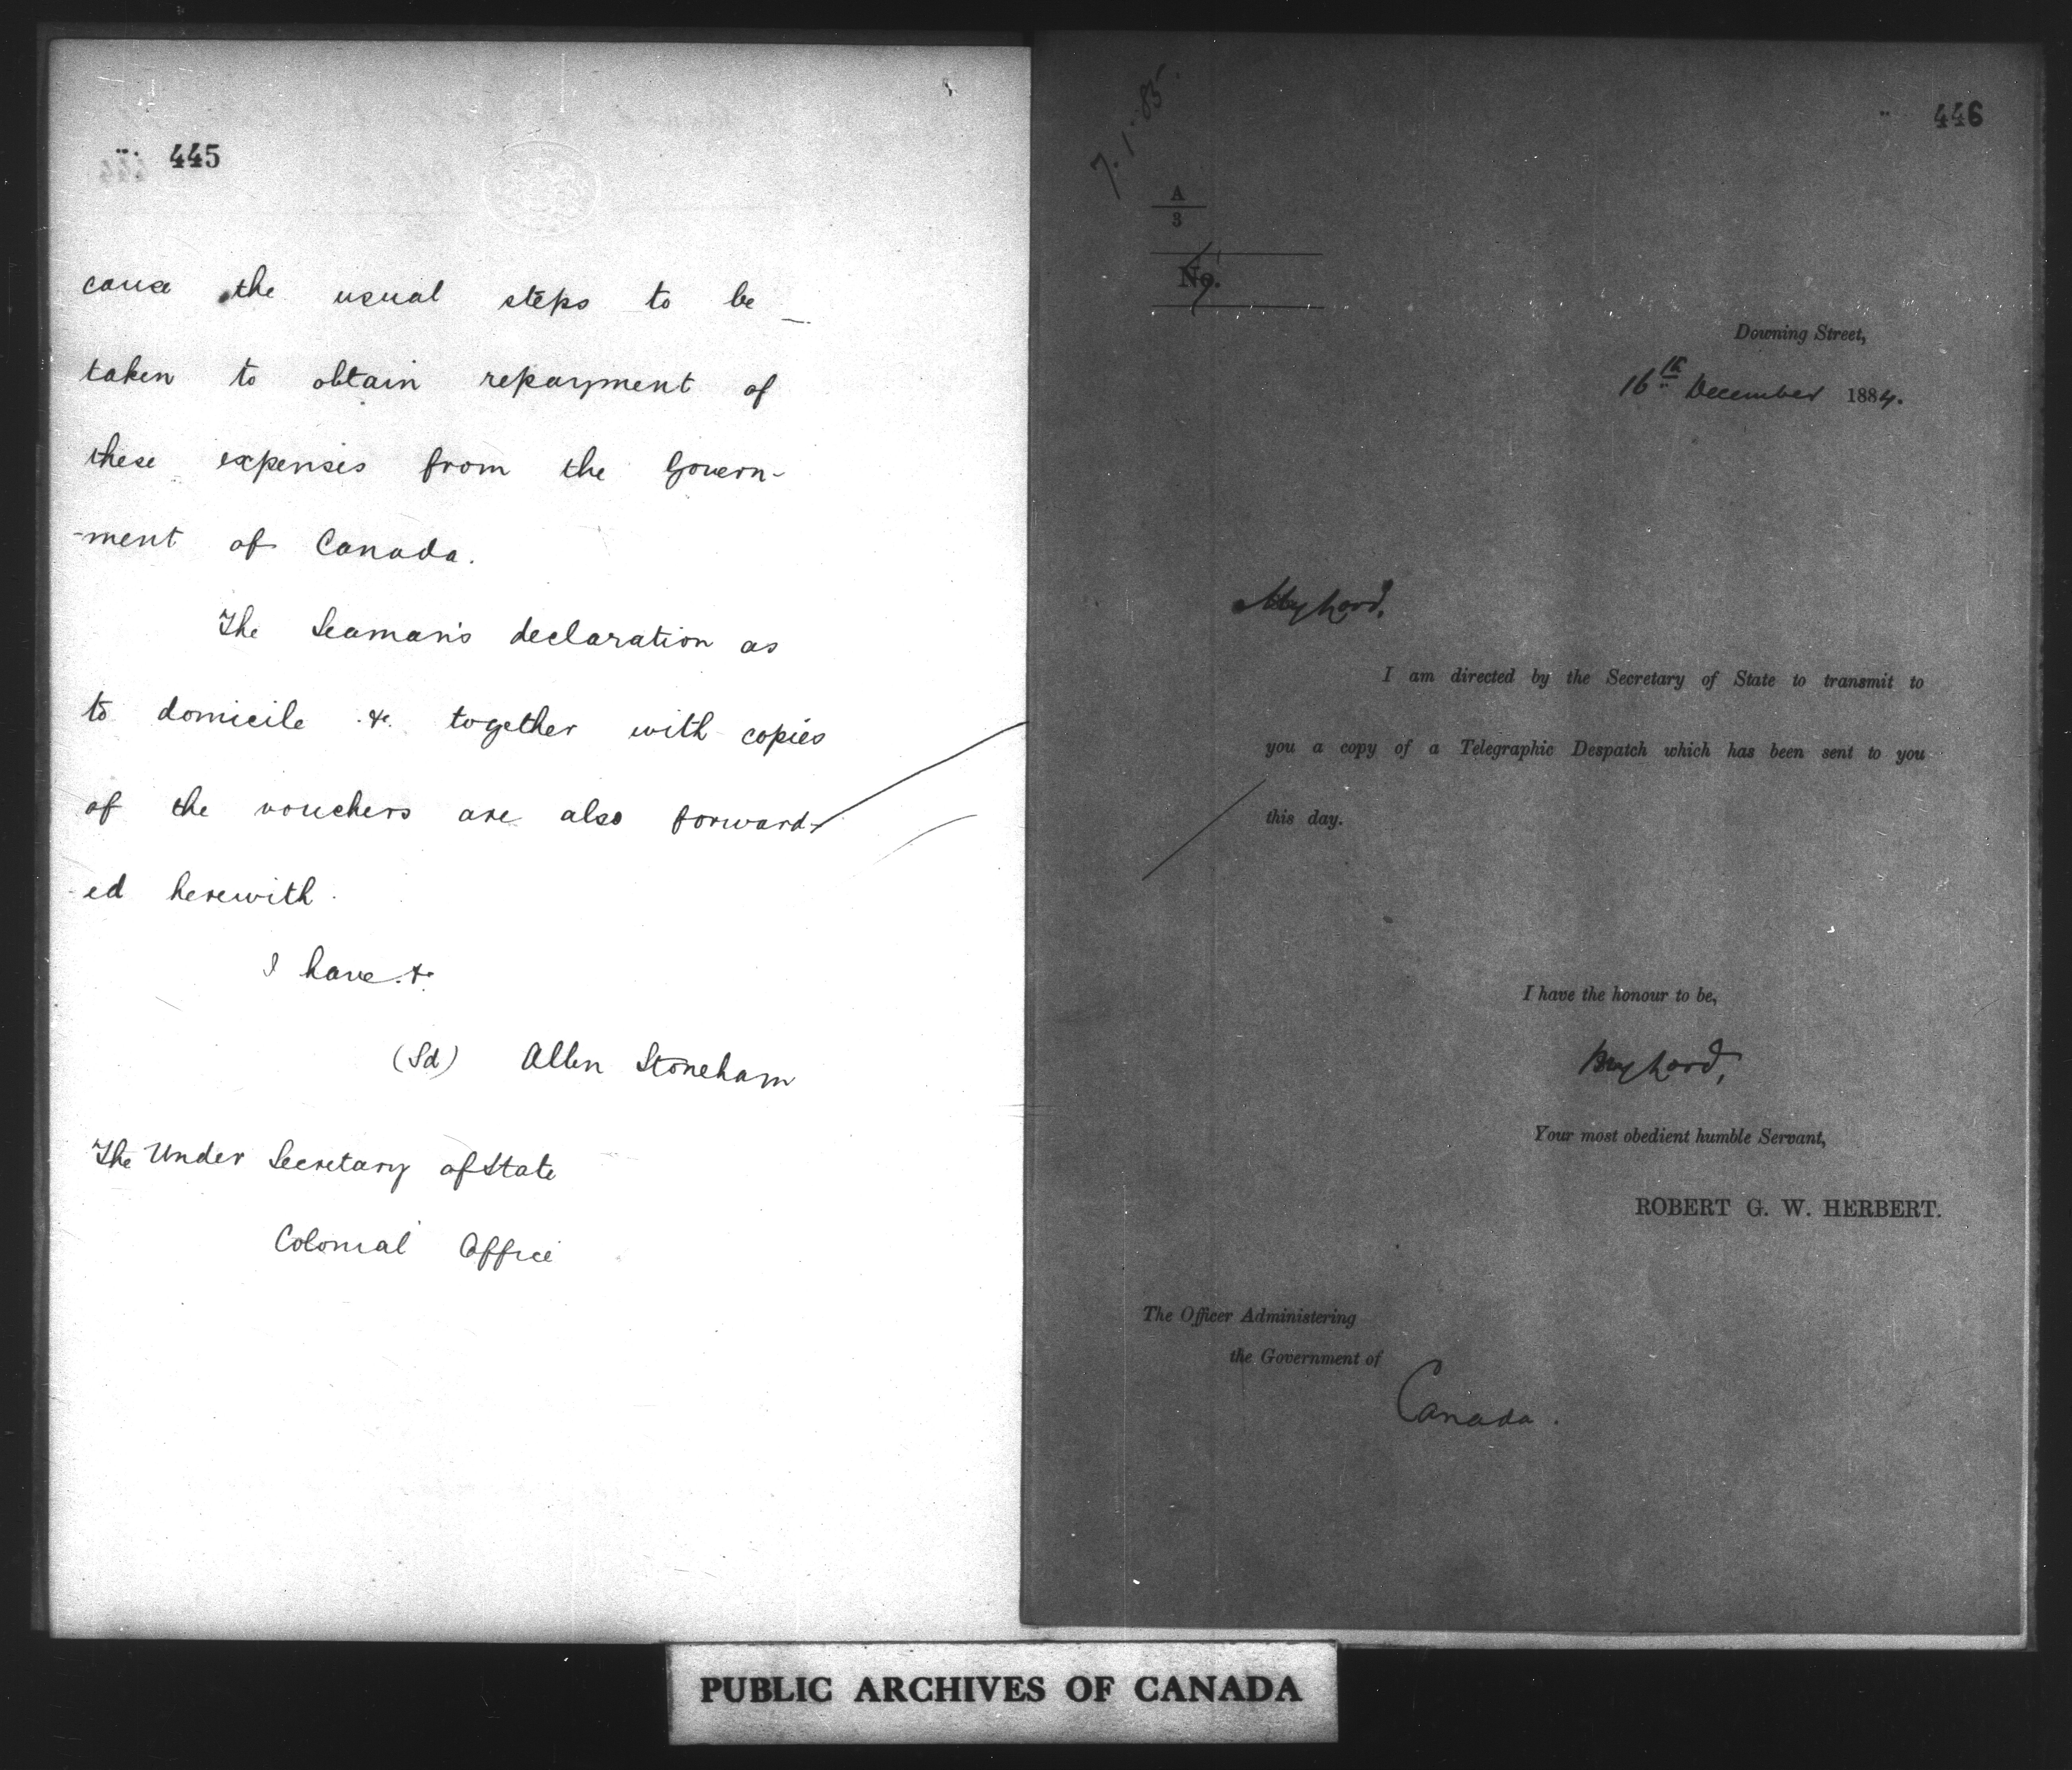 445
cause the usual steps to be
taken to obtain repayment of
these expenses from the Govern-
-ment of Canada.
The Seaman's declaration as
to domicile &c. together with copies
of the vouchers are also forward-
-ed herewith.
I have &c
(Sd) Allen Stoneham
The Under Secretary of State
Colonial Office
446
7.1.85
A
3
No.
Downing Street,
16th December 1884.
My Lord,
I am directed by the Secretary of State to transmit to
you a copy of a Telegraphic Despatch which has been sent to you
this day.
I have the honour to be,
My Lord,
Your most obedient humble Servant,
ROBERT G. W. HERBERT.
The Officer Administering
the Government of
Canada.
PUBLIC ARCHIVES OF CANADA